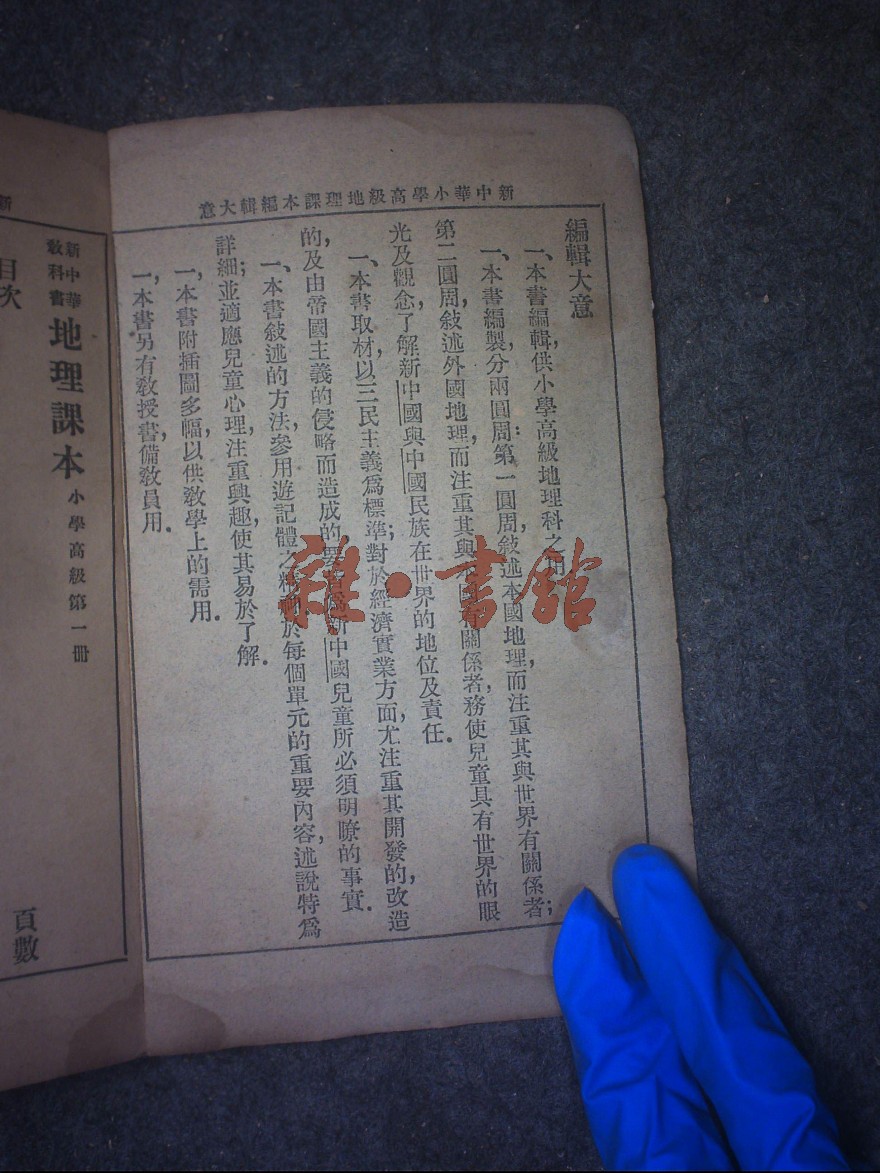 新中華小學高級地理課本編輯大意
編輯大意
一、本書編輯，供小學高級地理科之用。
一、本書編製，分兩圓周：第一圓周，敍述本國地理，而注重其與世界有關係者；
第二圓周，敍述外國地理，而注重其與本國有關係者，務使兒童具有世界的眼
光及觀念，了解新中國與中國民族在世界的地位及責任。
一、本書取材，以三民主義爲標準；對於經濟實業方面，尤注重其開發的，改造
的，及由帝國主義的侵略而造成的要者爲新中國兒童所必須明瞭的事實。
一、本書敍述的方法，參用遊記體之精神於每個單元的重要內容，述說特爲
詳細；並適應兒童心理，注重興趣，使其易於了解。
一、本書附插圖多幅，以供教學上的需用。
一、本書另有教授書，備教員用。
雜·書館
新
新中華
教科書
地理課本
小學高級第一册
目次
頁數